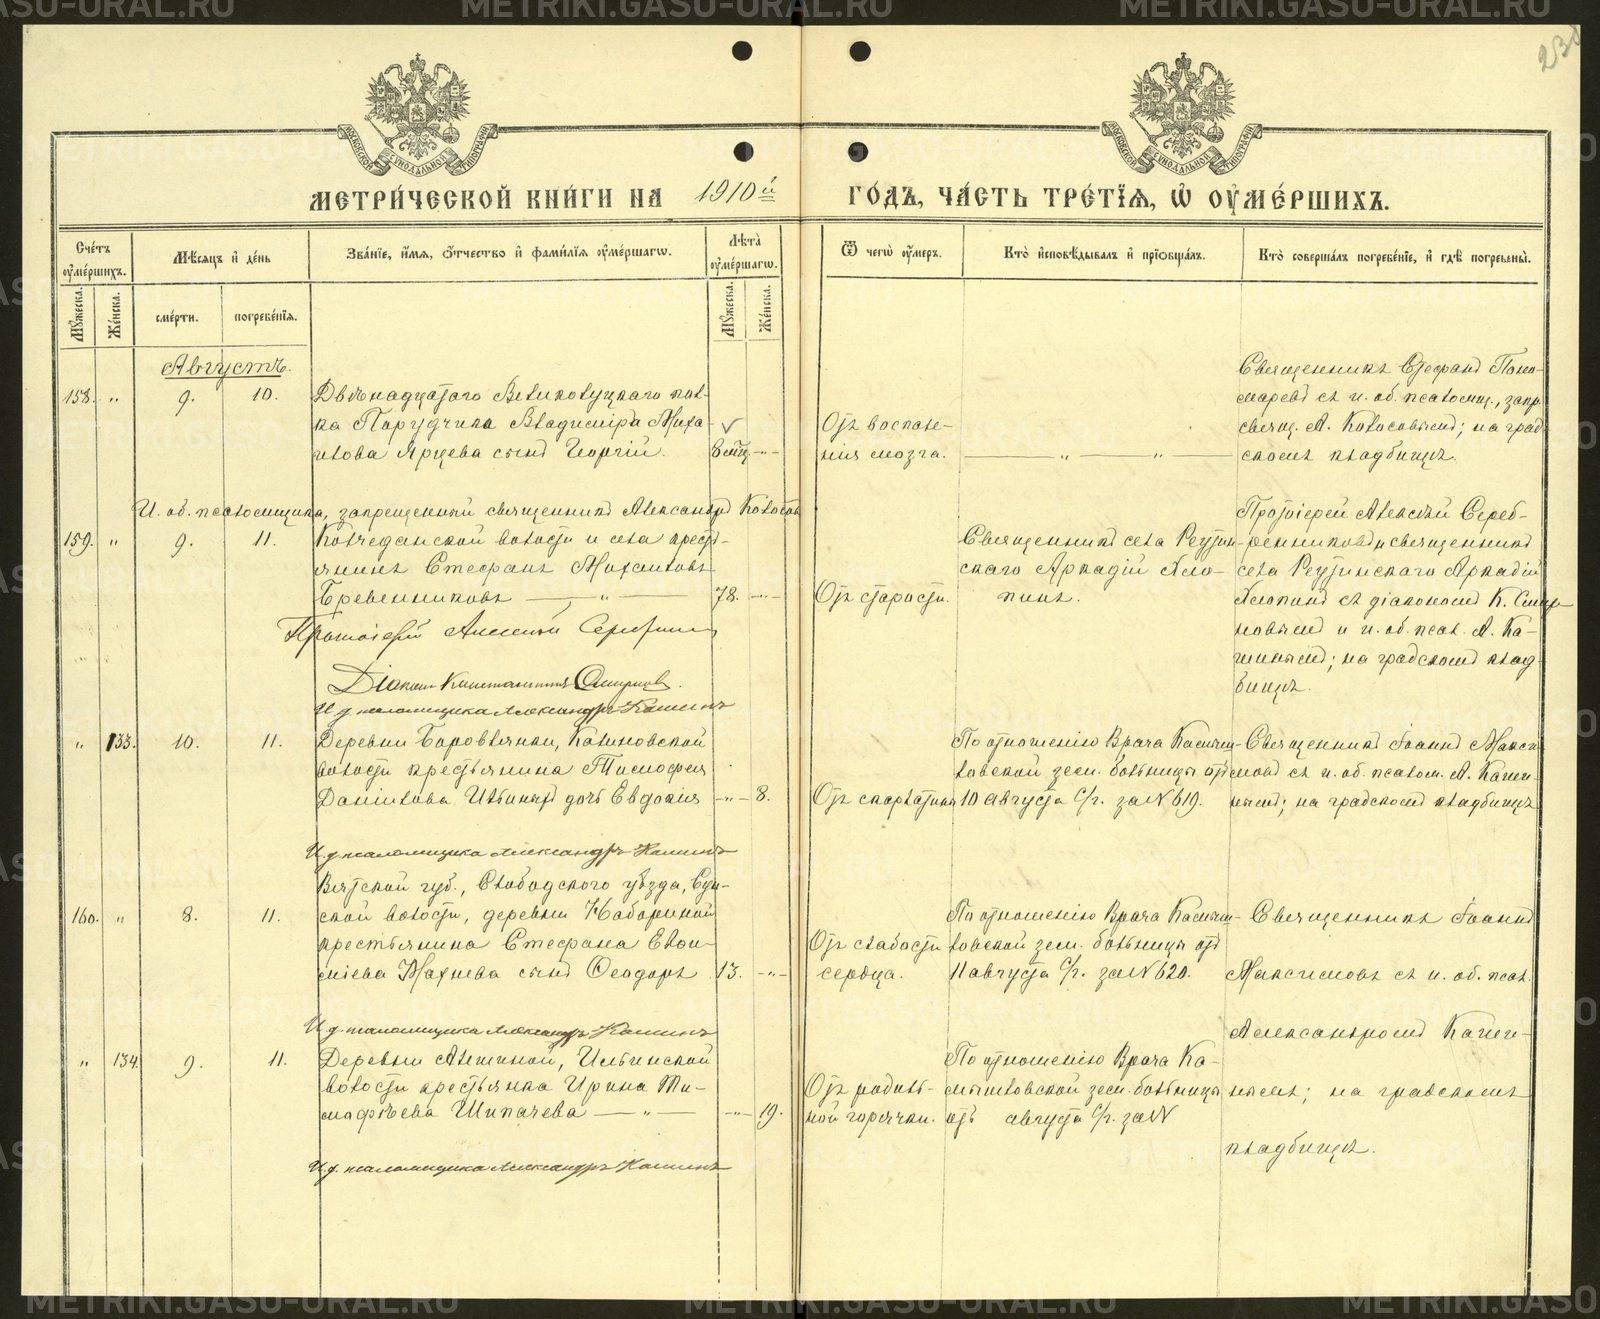 METRIKI.GASU-URAL.RU
230
МОСКОВСКОЙ СѴНОДАЛЬНОЙ ТИПОГРАФІИ
МОСКОВСКОЙ СѴНОДАЛЬНОЙ ТИПОГРАФІИ
МЕТРИ́ЧЕСКОЙ КНИ́ГИ НА 1910й ГО́ДЪ, ЧА́СТЬ ТРЕ́ТІЯ, Ѡ ОУМЕ́РШИХЪ.
Сче́тъ оумершихъ.
Мѣсяцъ и де́нь
Зва́ніе, имя, отчество и фами́лія оуме́ршагѡ.
Лѣта̀ оуме́ршагѡ.
Ѿ чегѡ оумеръ.
Кто̀ исповѣдывалъ и пріобща́лъ.
Кто̀ соверша́лъ погребе́ніе, и гдѣ̀ погребены̀.
Мужеска. Же́нска. сме́рти. погребе́нія. Мужеска. Же́нска.
Августъ.
158. „ 9. 10.
Двѣнадцатаго Великолуцкаго пол-
ка Поручика Владиміра Миха-
илова Ярцева сынъ Георгій. 8 мц. -„-
Отъ воспале-
нія мозга.
— „ — „ —
Священникъ Стефанъ Поно-
маревъ съ и. об. псаломщ., запр.
свящ. А. Колосовымъ; на град-
скомъ кладбищѣ.
И. об. псаломщика, запрещенный священникъ Александръ Колосовъ
159. „ 9. 11.
Колчеданской волости и села крест-
янинъ Стефанъ Михаиловъ
Бревенниковъ — „ — 78. -„-
Отъ старости.
Священникъ села Реутин-
скаго Аркадій Хло-
пинъ.
Протоіерей Алексій Сереб-
ренниковъ и священникъ
села Реутинскаго Аркадій
Хлопинъ съ діакономъ К. Смир-
новымъ и и. об. псал. А. Ка-
шинымъ; на градскомъ клад-
бищѣ.
Протоіерей Алексій
Діаконъ Константинъ Смирновъ.
И д. псаломщика Александръ Кашинъ
„ 133. 10. 11.
Деревни Боровлянки, Калиновской
волости крестьянина Тимофея
Даніилова Ильиныхъ дочь Евдокія -„- 8.
Отъ скарлатины
По отношенію Врача Камыш-
ловской зем. больницы отъ
10 августа с/г. за № 619.
Священникъ Іоаннъ Макси-
мовъ съ и. об. псалом. А. Каши-
нымъ; на градскомъ кладбищѣ
И д. псаломщика Александръ Кашинъ
160. „ 8. 11.
Вятской губ., Слободского уѣзда, Сун-
ской волости, деревни
крестьянина Стефана Евои-
міева Махнева сынъ Ѳеодоръ 13. -„-
Отъ слабости
сердца.
По отношенію Врача Камыш-
ловской зем. больницы отъ
11 августа с/г. за № 620.
Священникъ Іоаннъ
Максимовъ съ и. об. псал.
Александромъ Каши-
нымъ; на градскомъ
кладбищѣ.
И д. псаломщика Александръ Кашинъ
„ 134. 9. 11.
Деревни Алешиной, Ильинской
волости крестьянка Ирина Ти-
мофѣева Шипачева — „ — -„- 19.
Отъ родиль-
ной горячки.
По отношенію Врача Ка-
мышловской зем. больницы
отъ августа с/г. за №
И д. псаломщика Александръ Кашинъ
METRIKI.GASU-URAL.RU